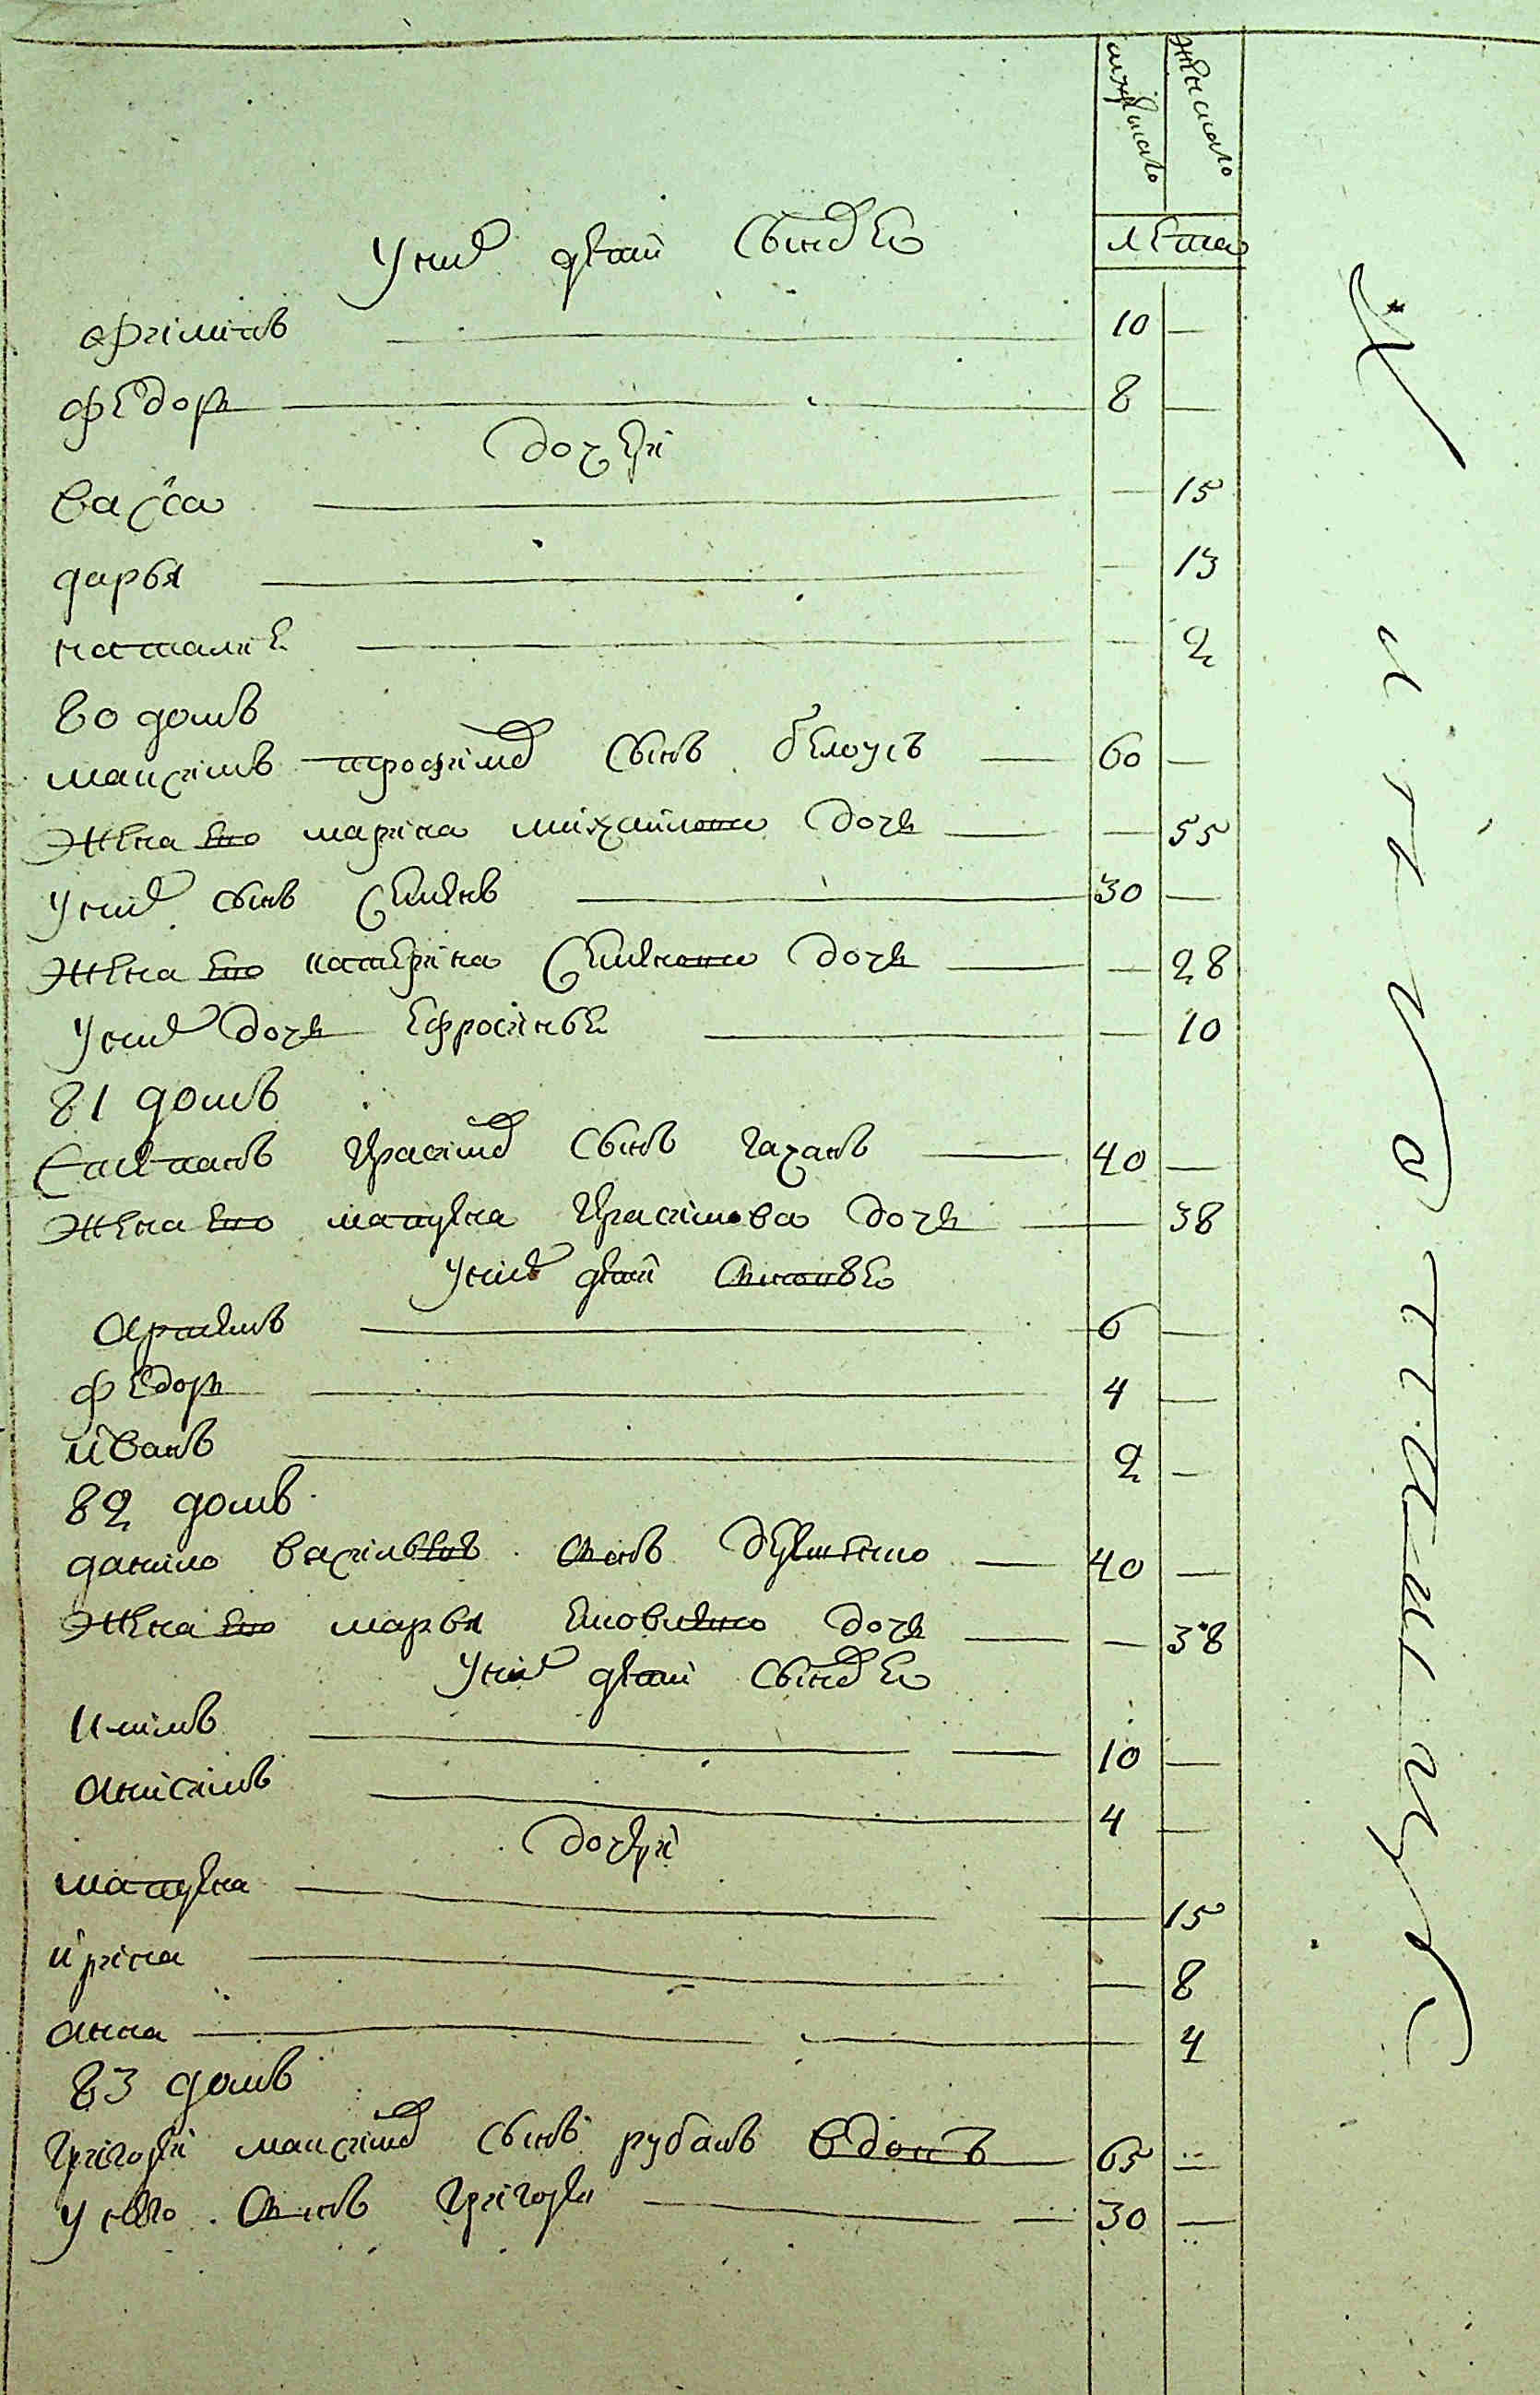 мужеска женска
лета
У них дети Сыновѣ
ефимъ — 10 —
федоръ — 8 —
дочери
Васса — — 15
дарья — — 13
наталиѣ — — 2
80 домъ
максимъ трофимов Сынъ белоусъ — 60 —
Жена ево марина михайлова дочь — — 55
У них сынъ Семенъ — 30 —
Жена ево катерина Семенова дочь — — 28
У них дочь Ефросинье — — 10
81 домъ
Степанъ Герасимов Сынъ — 40 —
Жена ево матрена Герасимова дочь — — 38
У них дети Сыновѣ
Артемъ — 6 —
федоръ — 4 —
иванъ — 2 —
82 домъ
данило Васильевъ Сынъ — 40 —
Жена ево марья дочь — — 38
У них дети Сыновѣ
— 10 —
Анисимъ — 4 —
дочери
матрена — — 15
ирина — — 8
анна — — 4
83 домъ
Григорей максимов Сынъ рубанъ Вдовъ — 65 —
У него Сынъ Григорей — 30 —